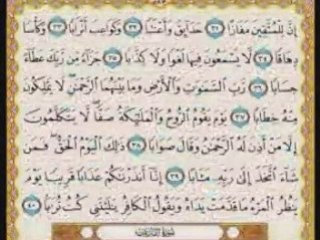 إِنَّ لِلْمُتَّقِينَ مَفَازًا ﴿٣١﴾ حَدَائِقَ وَأَعْنَابًا ﴿٣٢﴾ وَكَوَاعِبَ أَتْرَابًا ﴿٣٣﴾ وَكَأْسًا
دِهَاقًا ﴿٣٤﴾ لَا يَسْمَعُونَ فِيهَا لَغْوًا وَلَا كِذَّابًا ﴿٣٥﴾ جَزَاءً مِنْ رَبِّكَ عَطَاءً
حِسَابًا ﴿٣٦﴾ رَبِّ السَّمَوَاتِ وَالْأَرْضِ وَمَا بَيْنَهُمَا الرَّحْمَنِ لَا يَمْلِكُونَ
مِنْهُ خِطَابًا ﴿٣٧﴾ يَوْمَ يَقُومُ الرُّوحُ وَالْمَلَائِكَةُ صَفًّا لَا يَتَكَلَّمُونَ
إِلَّا مَنْ أَذِنَ لَهُ الرَّحْمَنُ وَقَالَ صَوَابًا ﴿٣٨﴾ ذَلِكَ الْيَوْمُ الْحَقُّ فَمَنْ
شَاءَ اتَّخَذَ إِلَى رَبِّهِ مَآبًا ﴿٣٩﴾ إِنَّا أَنْذَرْنَاكُمْ عَذَابًا قَرِيبًا يَوْمَ
يَنْظُرُ الْمَرْءُ مَا قَدَّمَتْ يَدَاهُ وَيَقُولُ الْكَافِرُ يَا لَيْتَنِي كُنْتُ تُرَابًا ﴿٤٠﴾